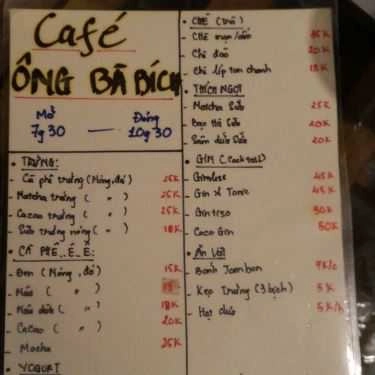 Café
ÔNG BÃ BÍCH
Mở Đóng
7g30 — 10g30
• TRỨNG:
- Cà phê trứng (Nóng, đá) 25K
- Matcha trứng ( " ) 25K
- Cacao trứng ( " ) 25K
- Sữa trứng nóng ( " ) 18K
• CÀ PHÊ..Ê..Ê:
- Đen (Nóng, đá) 15K
- Nâu ( " )
- Nâu dừa ( " ) 18K
- Cacao ( " ) 20K
- Mocha 25K
• YOGURT
• CHÈ (Trà)
- Chè 15K
- Chè đào 20K
- Chè líp tan chanh 15K
• THÍCH NGỌT
- Matcha Sữa 25K
- Bạc Hà Sữa 20K
- Sâm dứa Sữa 20K
• GIM (Cocktail)
- Gimlose 45K
- Gin & Tonic 45K
- 50K
- Coco Gin 50K
• ĂN VẶT
- Bánh Jambon 7K/c
- Kẹo Trứng (3 bịch) 5K
- Hạt dưa 5K/